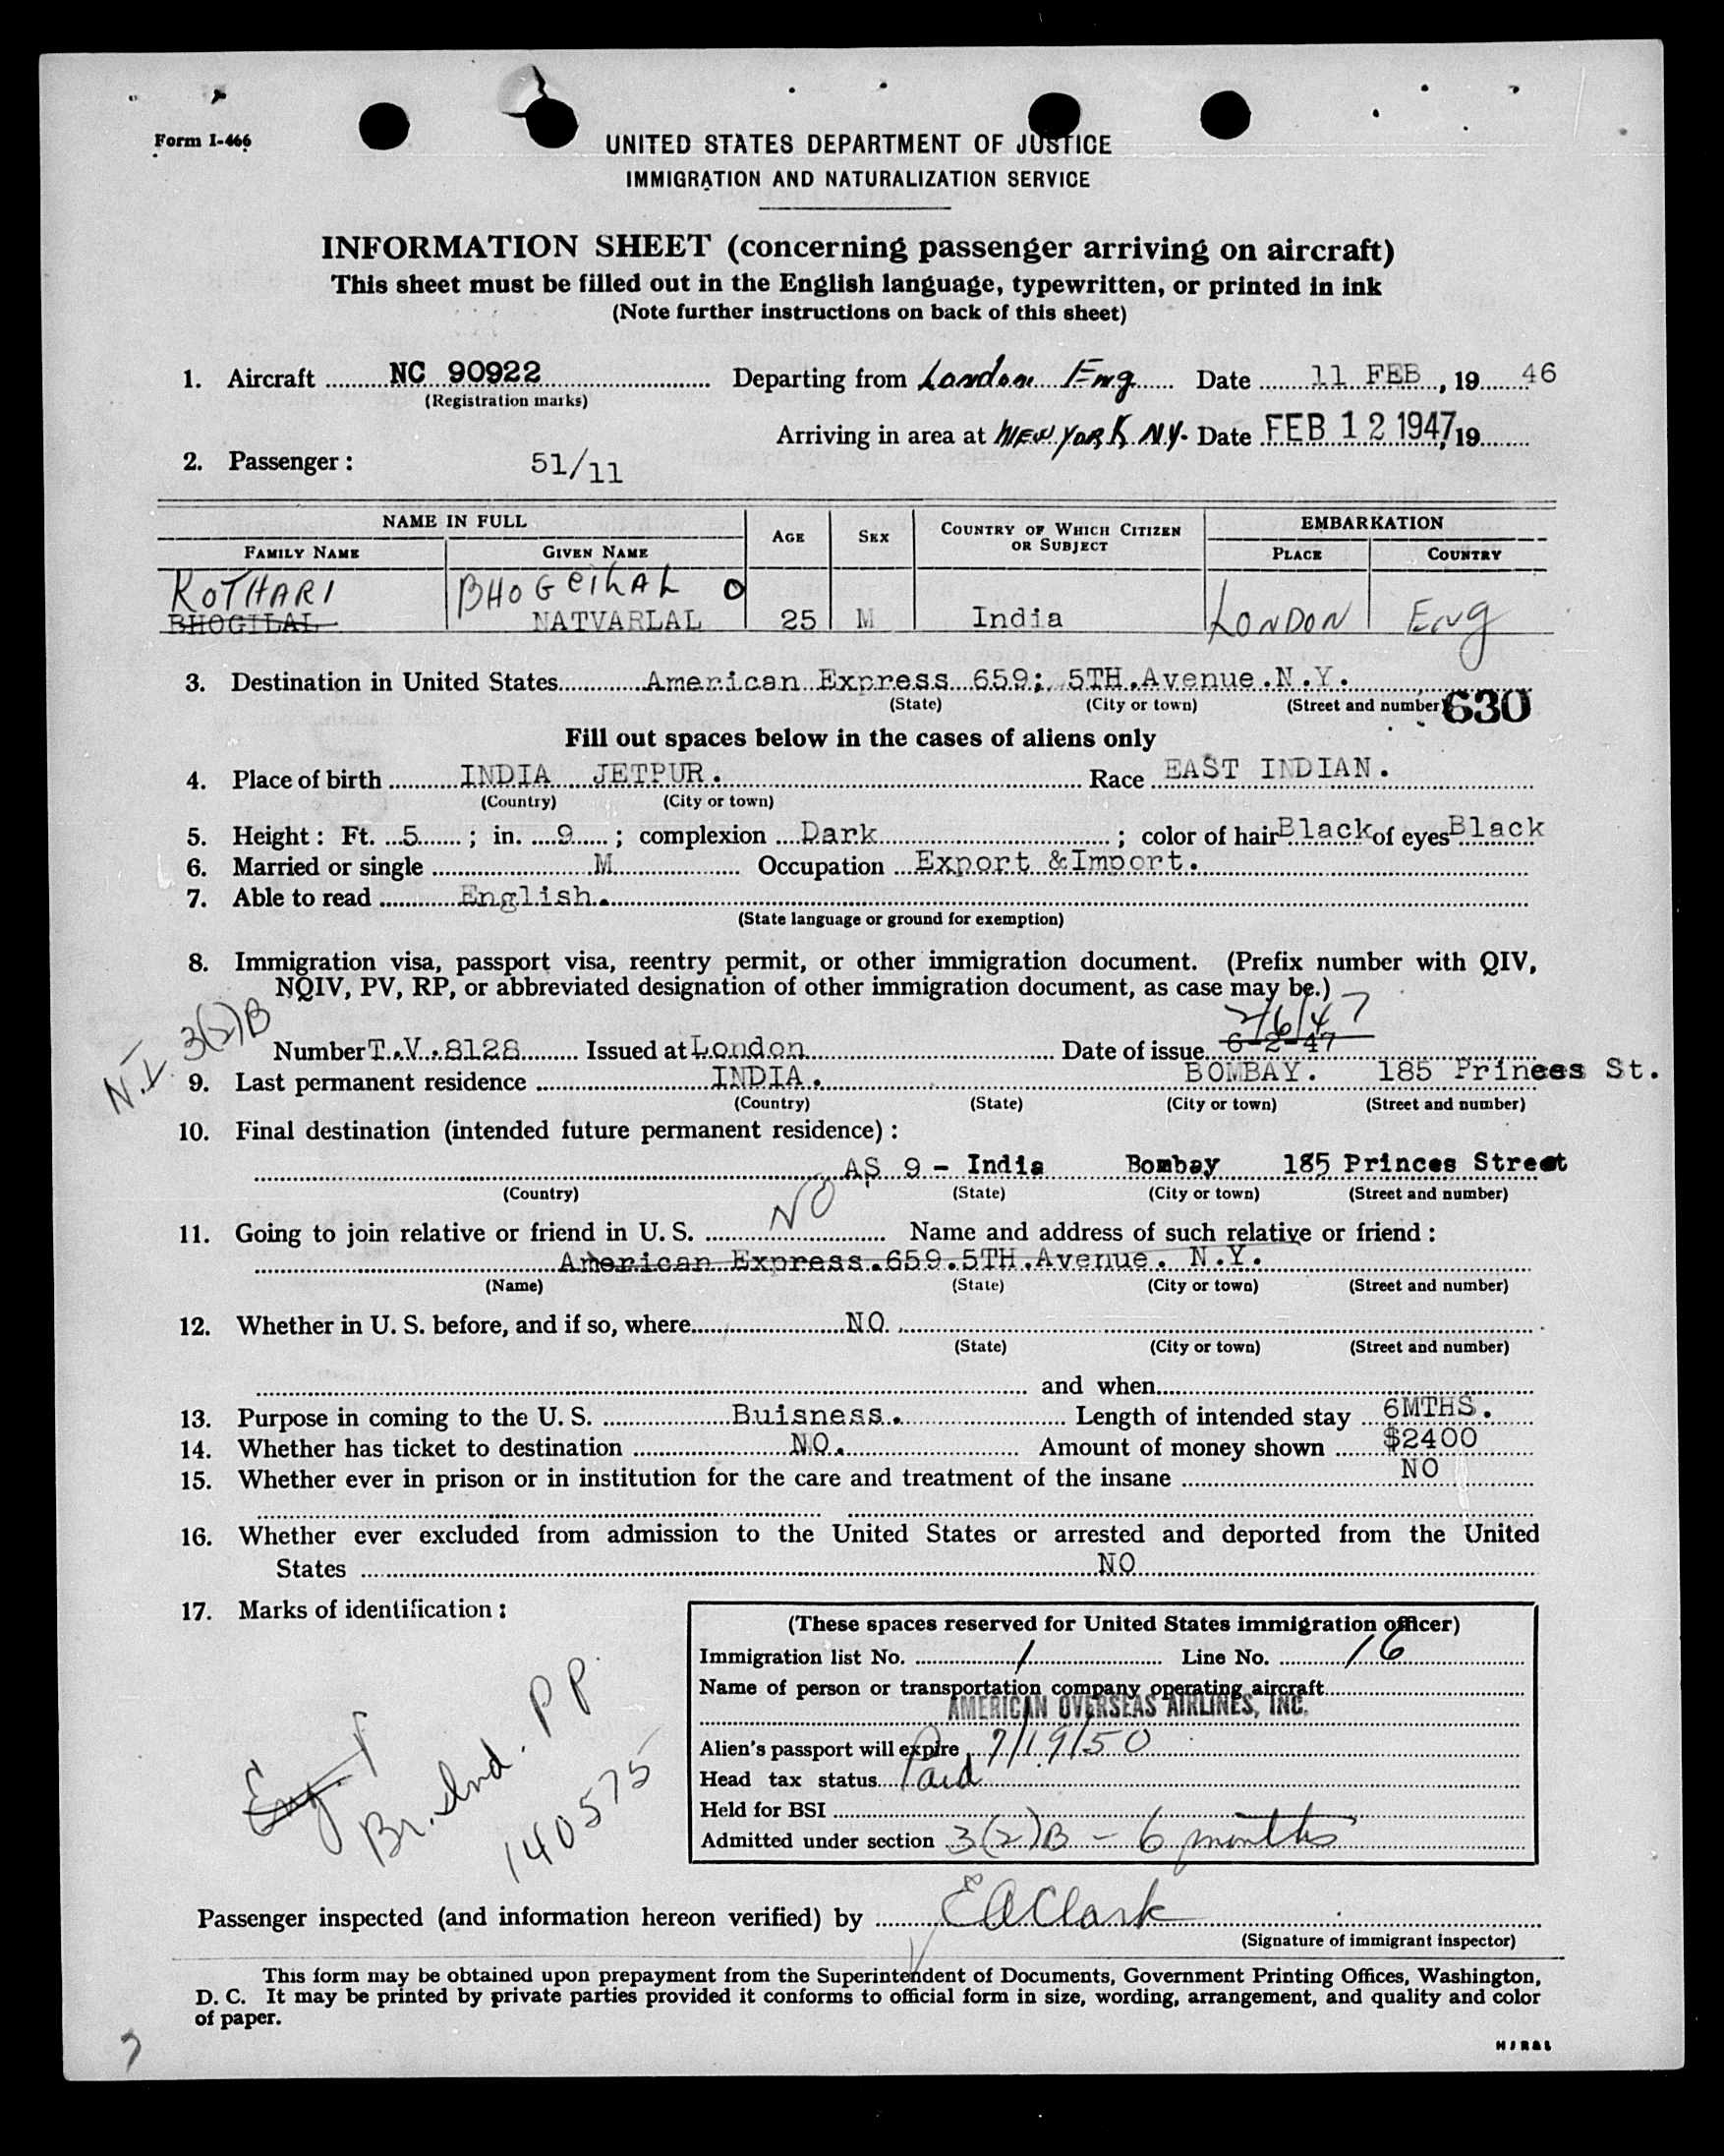 Form I-466
UNITED STATES DEPARTMENT OF JUSTICE
IMMIGRATION AND NATURALIZATION SERVICE
INFORMATION SHEET (concerning passenger arriving on aircraft)
This sheet must be filled out in the English language, typewritten, or printed in ink
(Note further instructions on back of this sheet)
1. Aircraft NC 90922 Departing from London Eng Date 11 FEB, 19 46
(Registration marks)
Arriving in area at NEW YORK N.Y. Date FEB 12 1947, 19
2. Passenger: 51/11
NAME IN FULL AGE SEX COUNTRY OF WHICH CITIZEN OR SUBJECT EMBARKATION
FAMILY NAME GIVEN NAME PLACE COUNTRY
KOTHARI BHOGEILAL O
BHOGILAL NATVARLAL 25 M India LONDON Eng
3. Destination in United States American Express 659; 5TH.Avenue.N.Y.
(State) (City or town) (Street and number) 630
Fill out spaces below in the cases of aliens only
4. Place of birth INDIA JETPUR. Race EAST INDIAN.
(Country) (City or town)
5. Height: Ft. 5; in. 9; complexion Dark; color of hair Black of eyes Black
6. Married or single M Occupation Export &Import.
7. Able to read English.
(State language or ground for exemption)
8. Immigration visa, passport visa, reentry permit, or other immigration document. (Prefix number with QIV,
NQIV, PV, RP, or abbreviated designation of other immigration document, as case may be.)
N.I. 3(2)B
2/6/47
Number T.V.8128 Issued at London Date of issue 6-2-47
9. Last permanent residence INDIA. BOMBAY. 185 Princes St.
(Country) (State) (City or town) (Street and number)
10. Final destination (intended future permanent residence):
AS 9 - India Bombay 185 Princes Street
(Country) (State) (City or town) (Street and number)
11. Going to join relative or friend in U. S. NO Name and address of such relative or friend:
American Express.659.5TH.Avenue. N.Y.
(Name) (State) (City or town) (Street and number)
12. Whether in U. S. before, and if so, where NO.
(State) (City or town) (Street and number)
and when
13. Purpose in coming to the U. S. Buisness. Length of intended stay 6MTHS.
14. Whether has ticket to destination NO. Amount of money shown $2400
15. Whether ever in prison or in institution for the care and treatment of the insane NO
16. Whether ever excluded from admission to the United States or arrested and deported from the United
States NO
17. Marks of identification:
Br. Ind. PP.
140575
(These spaces reserved for United States immigration officer)
Immigration list No. 1 Line No. 16
Name of person or transportation company operating aircraft
AMERICAN OVERSEAS AIRLINES, INC.
Alien's passport will expire 7/19/50
Head tax status Paid
Held for BSI
Admitted under section 3(2)B - 6 months
Passenger inspected (and information hereon verified) by EAClark
(Signature of immigrant inspector)
This form may be obtained upon prepayment from the Superintendent of Documents, Government Printing Offices, Washington,
D. C. It may be printed by private parties provided it conforms to official form in size, wording, arrangement, and quality and color
of paper.